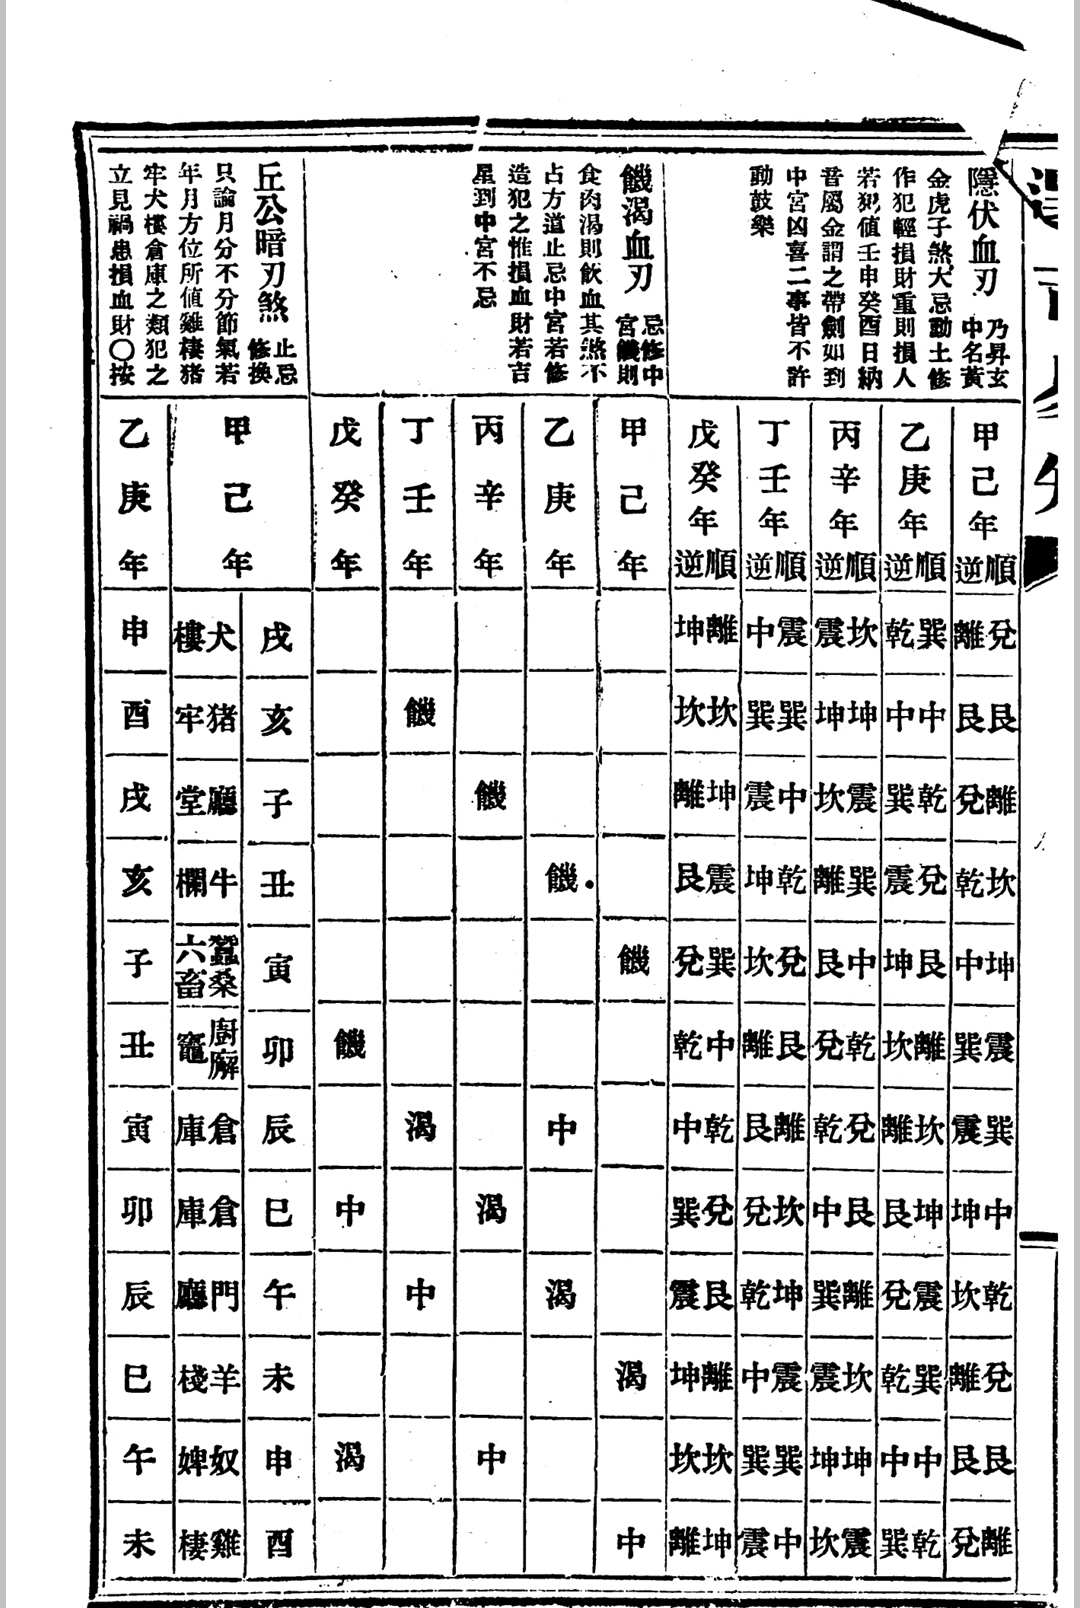 隱伏血刃 乃昇玄中名黃
金虎子煞大忌動土修
作犯輕損財重則損人
若犯値壬申癸酉日納
音屬金謂之帶劍如到
中宮凶喜二事皆不許
動鼓樂
甲己年 順逆
兌離
艮艮
離兌
坎乾
坤中
震巽
巽震
中坤
乾坎
兌離
艮艮
離兌
乙庚年 順逆
巽乾
中中
乾巽
兌震
艮坤
離坎
坎離
坤艮
震兌
巽乾
中中
乾巽
丙辛年 順逆
坎震
坤坤
震坎
巽離
中艮
乾兌
兌乾
艮中
離巽
坎震
坤坤
震坎
丁壬年 順逆
震中
巽巽
中震
乾坤
兌坎
艮離
離艮
坎兌
坤乾
震中
巽巽
中震
戊癸年 順逆
離坤
坎坎
坤離
震艮
巽兌
中乾
乾中
兌巽
艮震
離坤
坎坎
坤離
饑渴血刃 忌修中宮饑則
食肉渴則飲血其煞不
占方道止忌中宮若修
造犯之惟損血財若吉
星到中宮不忌
甲己年
饑
渴
中
乙庚年
饑
中
渴
丙辛年
饑
渴
中
丁壬年
饑
渴
中
戊癸年
饑
中
渴
丘公暗刃煞 止忌修換
只論月分不分節氣若
年月方位所値雞棲猪
牢犬樓倉庫之類犯之
立見禍患損血財〇按
甲己年
戌
亥
子
丑
寅
卯
辰
巳
午
未
申
酉
犬樓
猪牢
廳堂
牛欄
蠶桑六畜
廚廨竈
倉庫
倉庫
門廳
羊棧
奴婢
雞棲
乙庚年
申
酉
戌
亥
子
丑
寅
卯
辰
巳
午
未